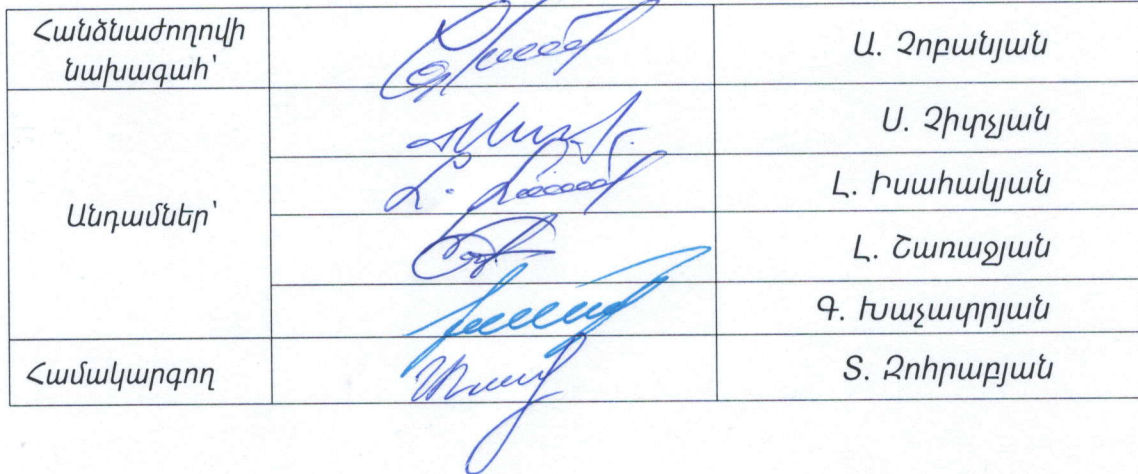 Հանձնաժողովի
նախագահ՝
Ա. Չոբանյան
Անդամներ՝
Ս. Չիտչյան
Լ. Իսահակյան
Լ. Շառաջյան
Գ. Խաչատրյան
Համակարգող
Տ. Զոհրաբյան